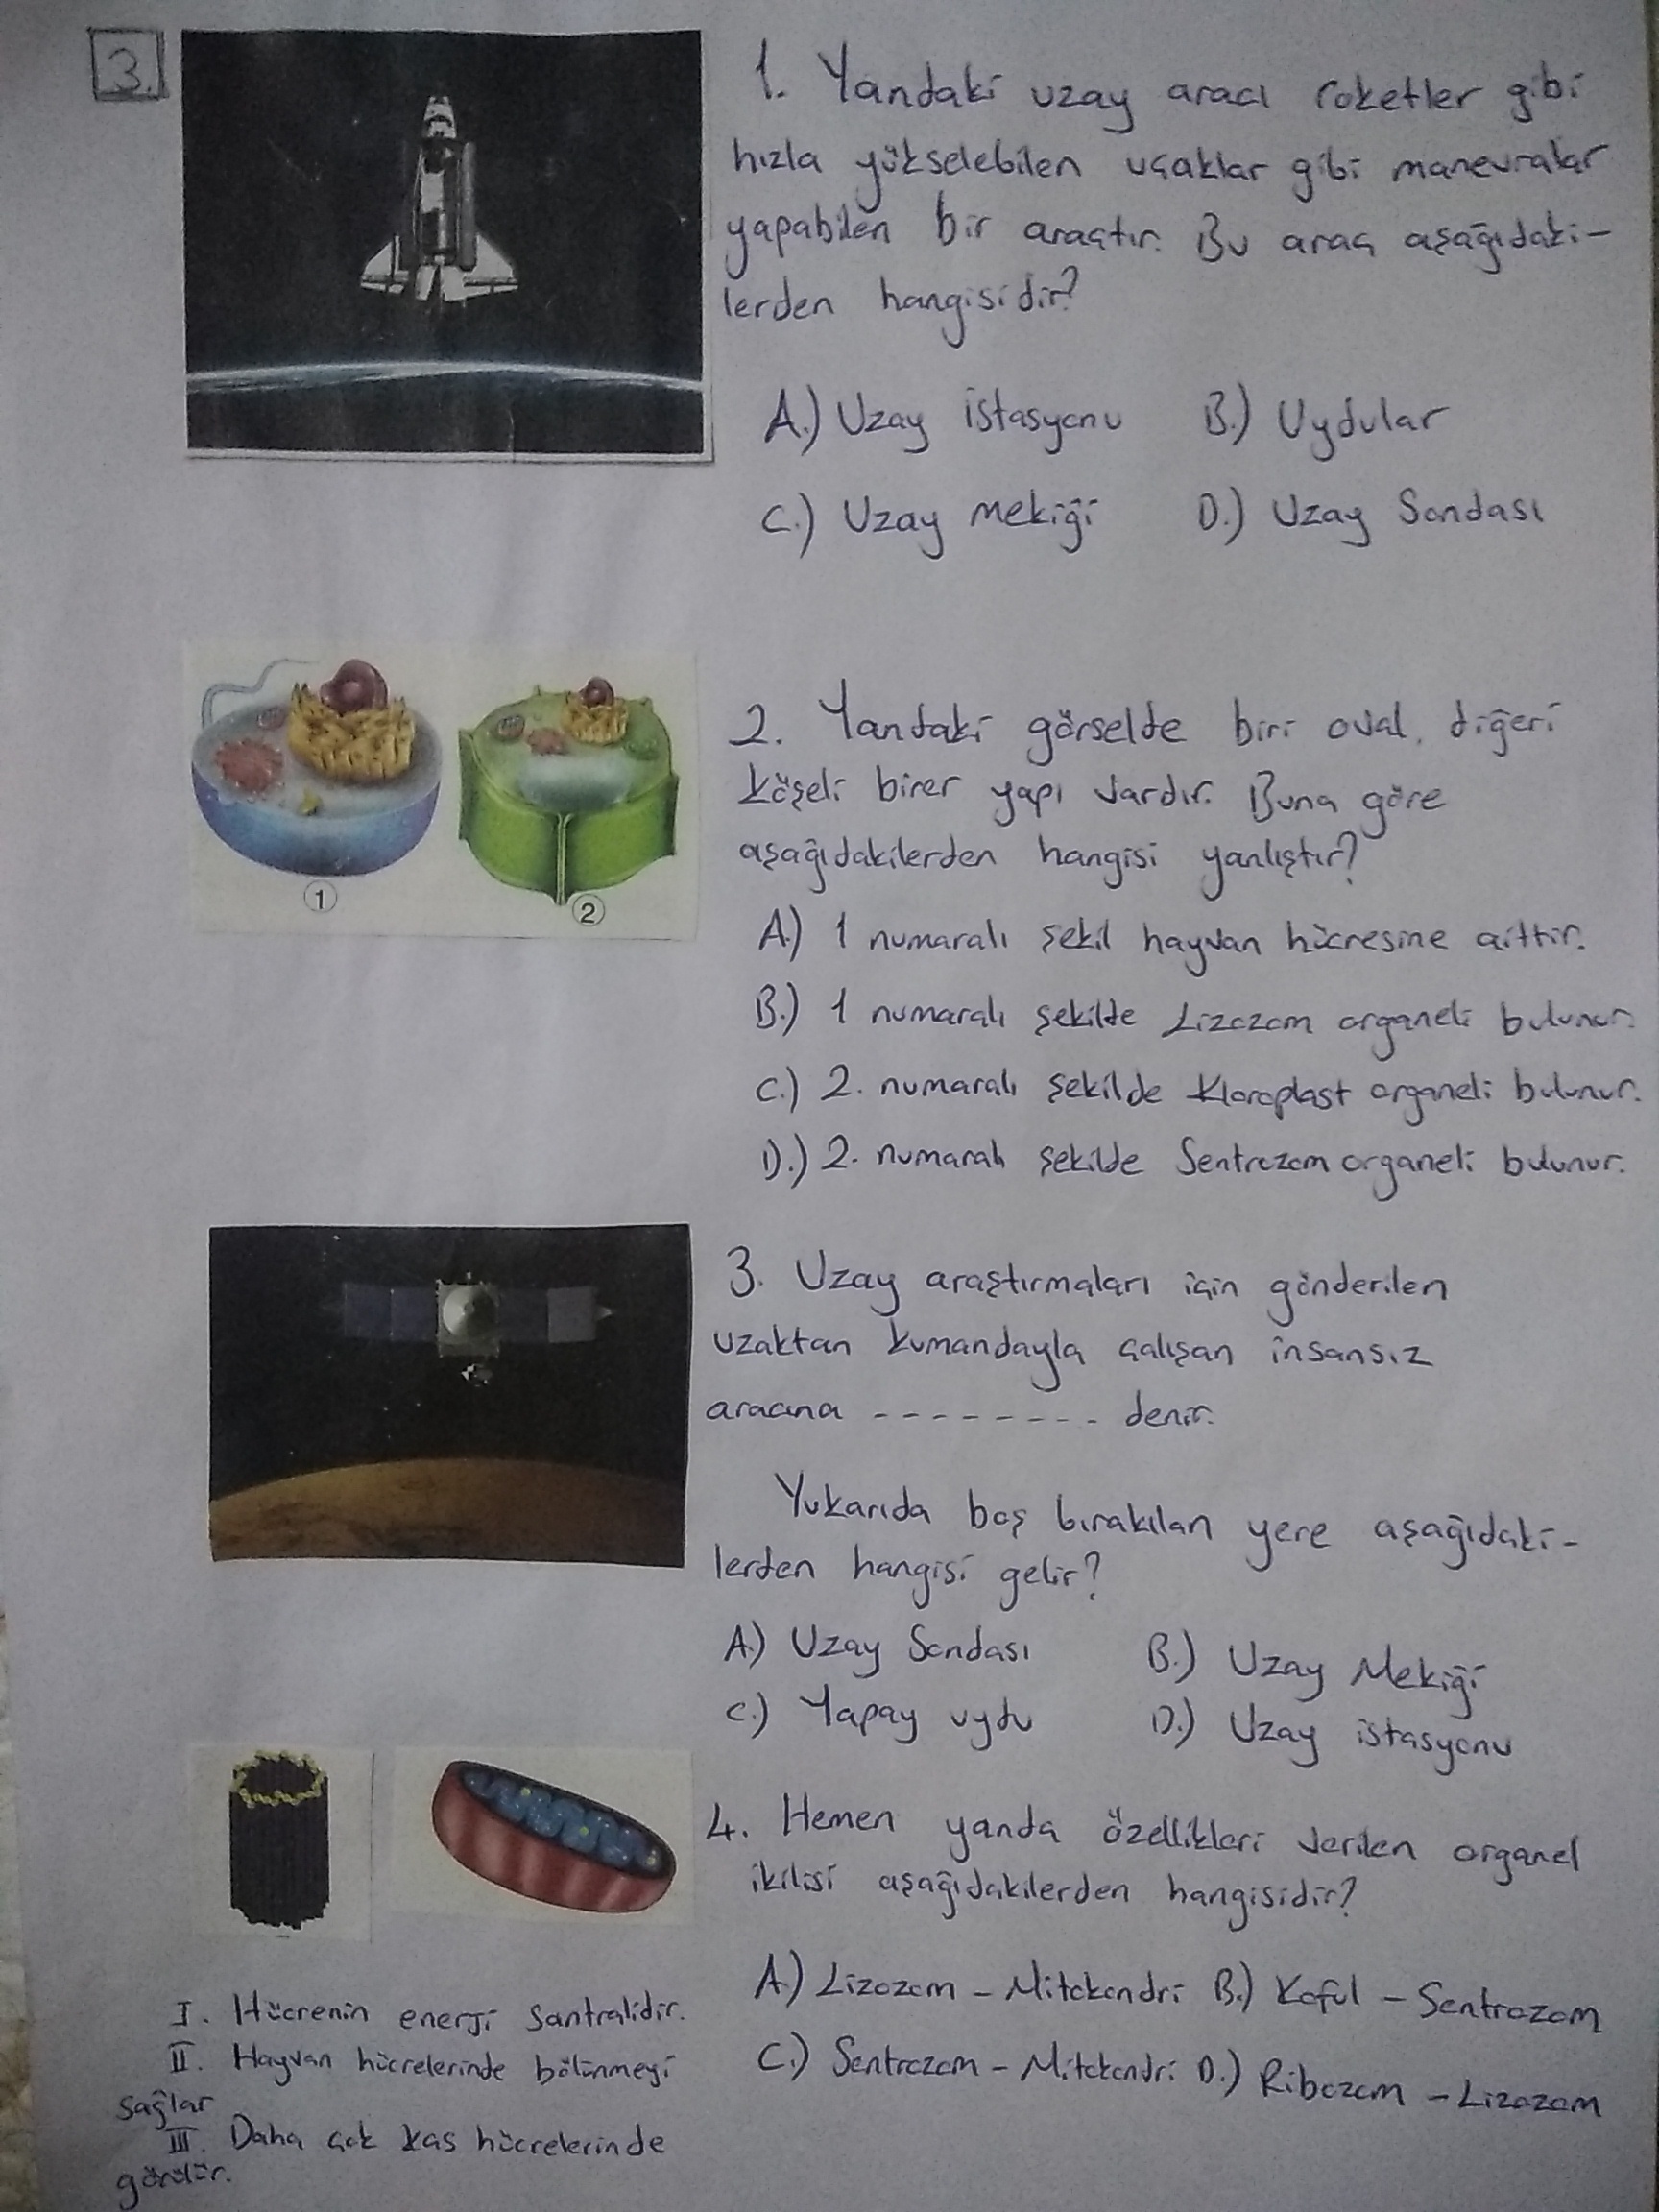 3.
1. Yandaki uzay aracı roketler gibi
hızla yükselebilen uçaklar gibi manevralar
yapabilen bir araçtır. Bu araç aşağıdaki-
lerden hangisidir?
A.) Uzay istasyonu B.) Uydular
C.) Uzay mekiği D.) Uzay Sondası
1
2
2. Yandaki görselde biri oval, diğeri
köşeli birer yapı vardır. Buna göre
aşağıdakilerden hangisi yanlıştır?
A.) 1 numaralı şekil hayvan hücresine aittir.
B.) 1 numaralı şekilde Lizozom organeli bulunur.
C.) 2. numaralı şekilde Kloroplast organeli bulunur.
D.) 2. numaralı şekilde Sentrozom organeli bulunur.
3. Uzay araştırmaları için gönderilen
uzaktan kumandayla çalışan insansız
aracına -------- denir.
Yukarıda boş bırakılan yere aşağıdaki-
lerden hangisi gelir?
A.) Uzay Sondası B.) Uzay Mekiği
C.) Yapay uydu D.) Uzay istasyonu
4. Hemen yanda özellikleri verilen organel
ikilisi aşağıdakilerden hangisidir?
A.) Lizozom - Mitokondri B.) Koful - Sentrozom
C.) Sentrozom - Mitokondri D.) Ribozom - Lizozom
I. Hücrenin enerji santralidir.
II. Hayvan hücrelerinde bölünmeyi
sağlar
III. Daha çok kas hücrelerinde
görülür.